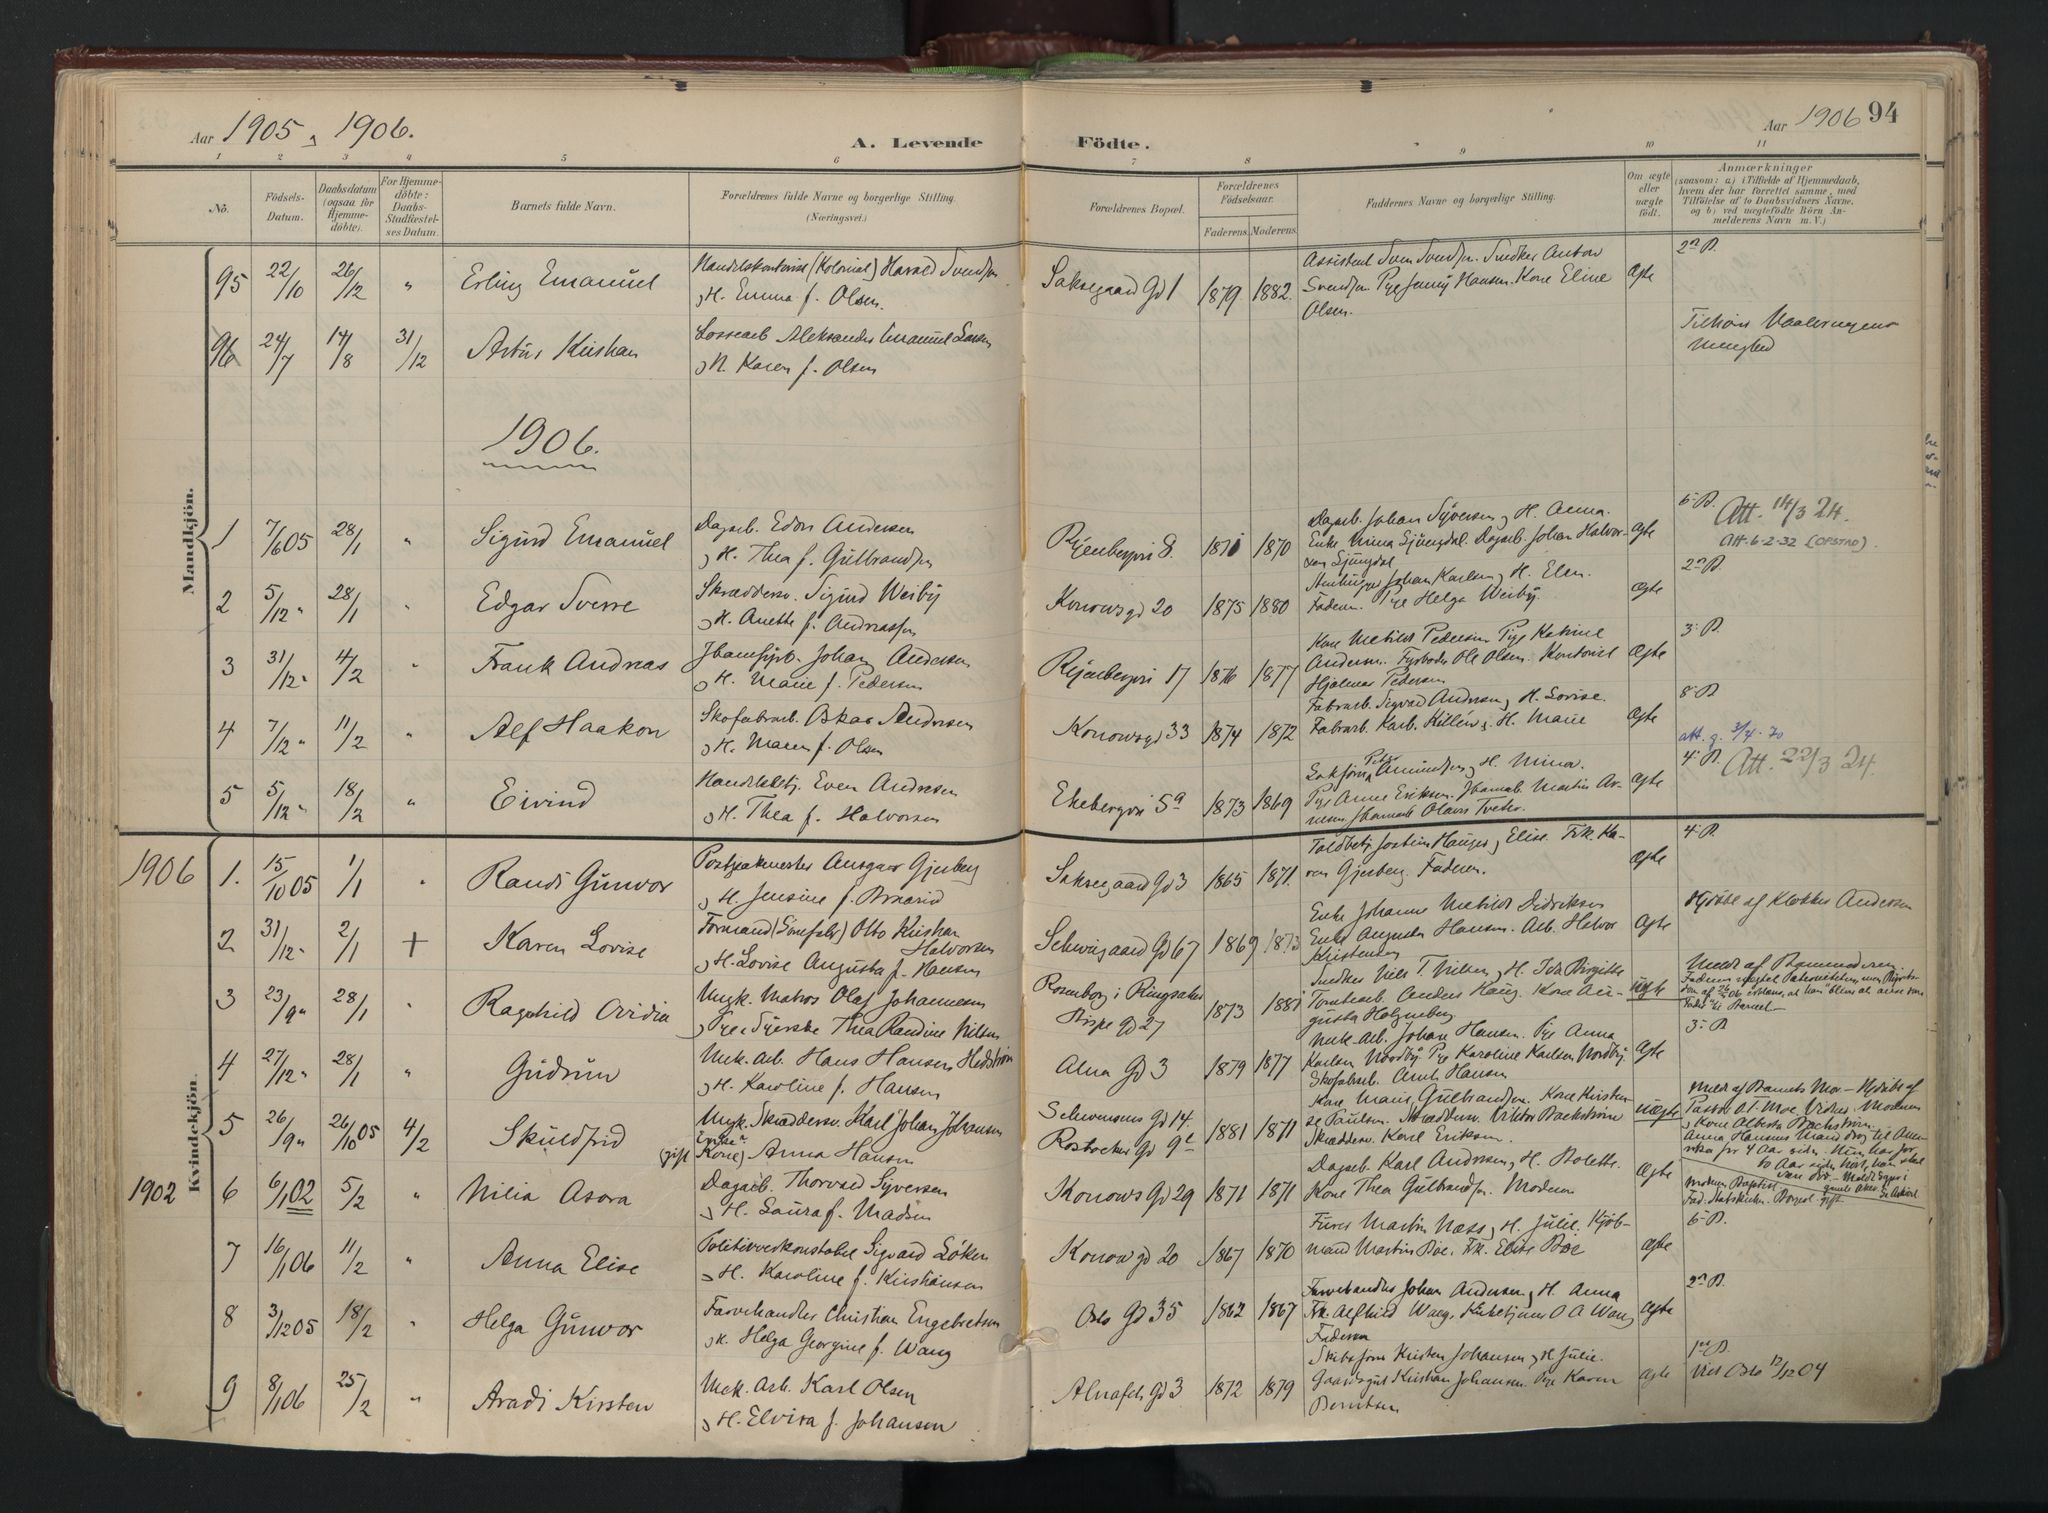 Aar 1905 1906.
A. Levende
Födte.
Aar 1906
94
1 2 3 4 5 6 7 8 9 10 11
No.
Födsels-
Datum.
Daabsdatum
(ogsaa for
Hjemme-
döbte).
For Hjemme-
döbte:
Daabs-
Stadfæstel-
ses Datum.
Barnets fulde Navn.
Forældrenes fulde Navne og borgerlige Stilling.
(Næringsvei.)
Forældrenes Bopæl.
Forældrenes
Födselsaar.
Faderens. Moderens.
Faddernes Navne og borgerlige Stilling.
Om ægte
eller
uægte
födt.
Anmærkninger
(saasom: a) i Tilfælde af Hjemmedaab,
hvem der har forrettet samme, med
Tilföielse af to Daabsvidners Navne,
og b) ved uægtefödte Börn An-
melderens Navn m. V.)
Mandkjön.
95 22/10 26/12 " Erling Emanuel
(Kolonial) Harald Svendsen
H. Emma f. Olsen.
Saksegaard Gd 1 1879. 1882.
Assistent Sven Svendsen. Snedker Anton
Svendsen. Pige Jenny Hansen. Kone Eline
Olsen.
Ægte
2 n P.
96 24/7 14/8 31/12 Artur Kristian
Lossearb Aleksander Emanuel Larsen
H. Karen f. Olsen
Tilhörer Vaalerengens
Menighed
1906.
1 7/6 05 28/1 " Sigurd Emanuel
Dagarb. Edon Andersen
H. Thea f. Gulbrandsen
8. 1871 1870
Dagarb. Johan Syversen, H. Anna.
Enke Mina Sjüngdal. Dagarb. Johan Halvor-
sen Sjüngdal
Ægte
6. P. Att. 14/3 24.
Att. 6-2-32 (OPSTAD).
2 5/12 " 28/1 " Edgar Sverre
Skræddersv. Sigurd Weiby
H. Anette f. Andreassen
Konowsgd 20 1875 1880
Johan Karlsen, H. Elen.
Faderen. Pige Helga Weiby.
Ægte
2 n P.
3 31/12 " 4/2 " Frank Andreas
Johan Andersen
H. Marie f. Pedersen
17 1876 1877
Kone Matilde Pedersen Pige Katrine
Andersen. Fyrböder Ole Olsen. Kontorist
Hjalmar Pedersen
Ægte
3. P.
4 7/12 " 11/2 " Alf Haakon
Skofabarb. Oskar Andersen
H. Maren f. Olsen
Konowsgd 33 1874 1872
Fabrarb. Sigvard Andersen, H. Lovise.
Fabrarb. Karl Killén, H. Marie
Ægte
8. P.
att. g. 3/4-70
5 5/12 " 18/2 " Eivind
Handelsbetj. Even Andresen
H. Thea f. Halvorsen
Ekebergvei 5a 1873 1869
Peter
Amundsen, H. Mina.
Pige Anne Eriksen. Martin Ar-
nesen. Olaus Tveter.
Ægte
4. P. Att. 22/3 24.
Kvindekjön.
1906 1. 15/10 05 1/1 " Randi Gunvor
Postpakmester Ansgar Gjesberg
H. Jensine f.
Saksegaard Gd 3 1865 1871.
Toldbetj. Jostein Hauger, Elise. Frk. Ka-
ren Gjesberg. Faderen.
Ægte
4. P.
2 31/12 " 2/1 + Karen Lovise
Formand Otto Kristian
Halvorsen
H. Lovise Augusta f. Hansen
Schweigaard Gd 67 1869 1873
Enke Johanne Matilde Didriksen
Enke Augusta Hansen. Arb. Halvor
Kristensen
Ægte
Hjdöbt af Klokker Andersen
3 23/9 " 28/1 " Ragnhild Ovidia
Ungk. Matros Olaf Johannessen
Pige, Syerske Thea Randine Nilsen
Rosenborg i Ringsaker
Bispe Gd 27 1873 1881
Snedker Nils T. Nilsen, H. Ida Birgitte
Tomtearb. Anders Haug. Kone Au-
gusta Holmberg
Uægte
Meldt af Barnemoderen.
4 27/12 " 28/1 " Gudrun
Mek. Arb. Hans Hansen Hedström
H. Karoline f. Hansen
Alna Gd 3 1879 1877
Mek. Arb. Johan Hansen. Pige Anna
Karlsen Nordby. Pige Karoline Karlsen Nordby
Skofabarb. Arnt Hansen
Ægte
3. P.
5 26/9 " 26/10 05 4/2 Skuldfrid
Ungk. Skræddersv. Karl Johan Johansen
"Enke"
(gift Kone) Anna Hansen
Schweensens Gd 14.
Rostocker Gd 9c 1881 1871
Kone Marie Gulbrandsen. Kone Kirsten-
se Paulsen. Skræddersv. Viktor Backström
Skræddersv. Karl Eriksen.
Uægte
Meldt af Barnets Mor - Hjdöbt af
Pastor O. T. Moe. Vidner. Moderen
, Kone Alberta Backström.
Anna Hansens Mand drog til Ame-
rika for 4 Aar siden. Hun har for
to Aar siden hört, han skal
være död.
1902 6 6/1 02 5/2 " Nilia Asora
Dagarb. Thorvald Syversen
H. Laura f. Madsen
Konows Gd 29 1871 1871
Dagarb. Karl Andersen, H. Bolette.
Kone Thea Gulbrandsen. Moderen
Ægte
Moderen Baptist
Fad. Statskirken. Borgerl. gift
7 16/1 06 11/2 " Anna Elise
Politioverkonstabel Sigvard Löken
H. Karoline f. Kristiansen
Konow gd 20 1867 1870
Furer Martin Næss, H. Julie. Kjöb-
mand Martin Böe. Frk. Elise Böe
Ægte
6. P.
8 3/12 05 18/2 " Helga Gunvor
Farvehandler Christian Engebretsen
H. Helga Georgine f. Wang
Oslo Gd 35 1862 1867
Farvehandler Johan Andersen, H. Anna
Frk. Alfhild Wang. Kirketjener O A Wang
Faderen
Ægte
2 n P.
9 8/1 06 25/2 " Aradi Kirsten
Mek. Arb. Karl Olsen
H. Elvira f. Johansen
Alnafet Gd 3 1872 1879
Skibstöm Kristen Johansen, H. Julie.
Gaardsgut Kristian Johansen. Pige Karen
Berntsen
Ægte
1 n P.
Viet Oslo 12/12 04